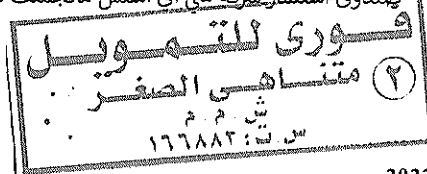 فورى للتمويل
متناهى الصغر ٢
ش م م
س ت: ١٦٦٨٨٢